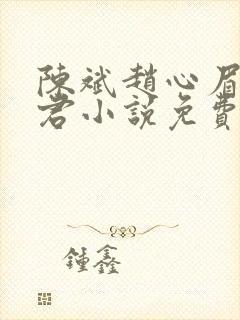 陳斌趙心眉
君小説免費
鍾鑫